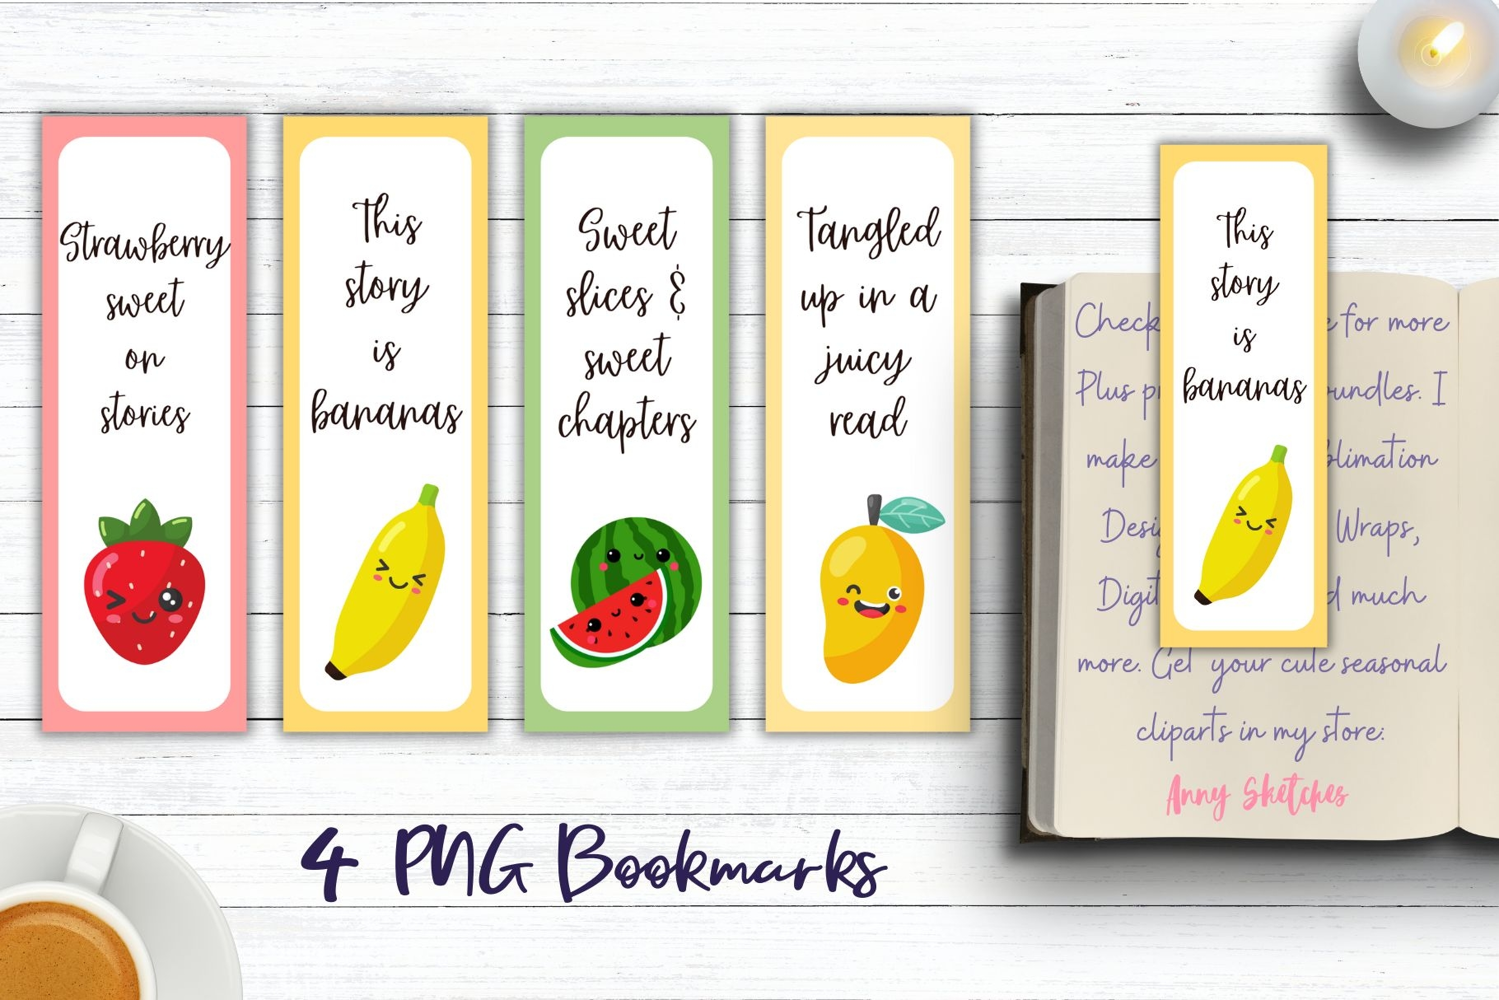 Strawberry
sweet
on
stories
This
story
is
bananas
Sweet
slices &
sweet
chapters
Tangled
up in a
juicy
read
4 PNG Bookmarks
This
story
is
bananas
Check for more
Plus bundles. I
make
Wraps,
much
more. Get your cute seasonal
cliparts in my store:
Anny Sketches